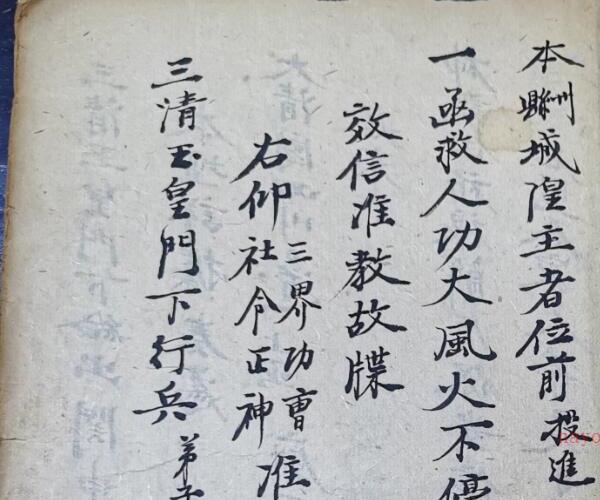 本縣城隍主者位前投進
一函救人功大風火不停
效信准教故牒
右仰
三界功曹
社令正神
准
三清玉皇門下行兵弟子